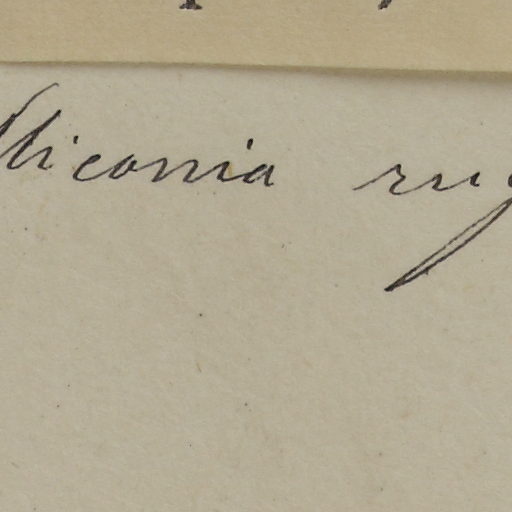 Miconia rug